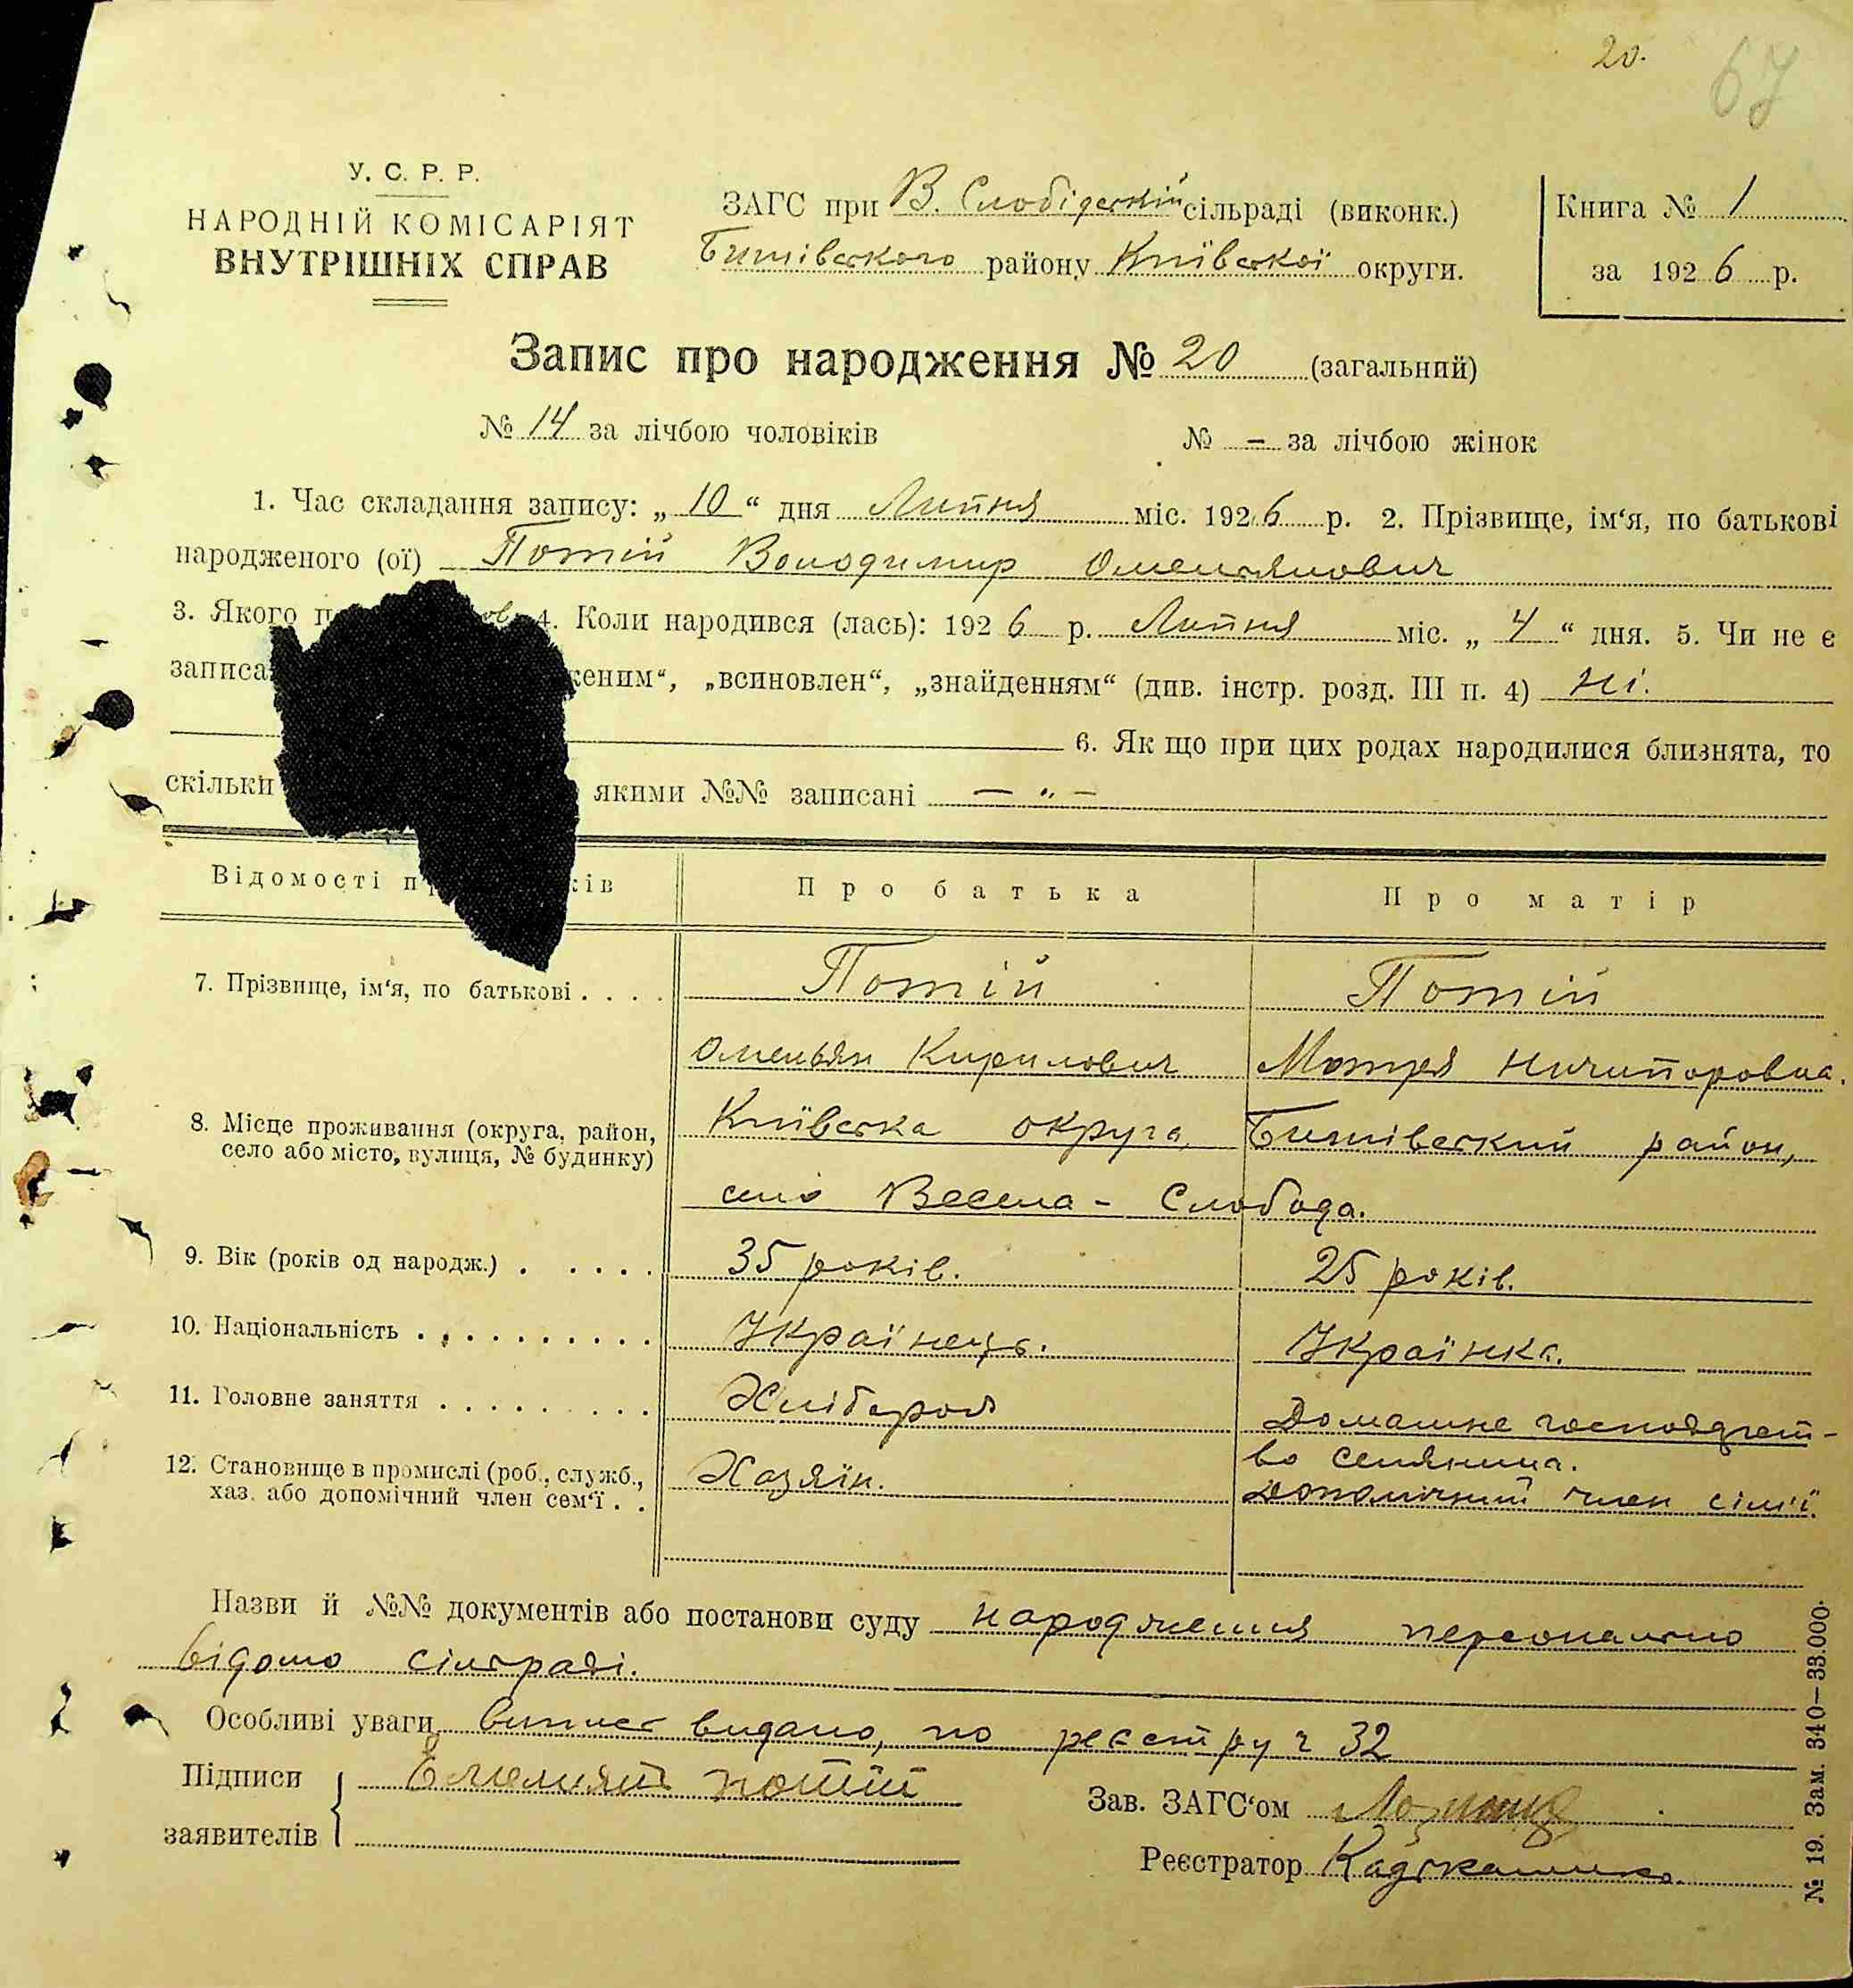 20.
67
У. С. Р. Р.
НАРОДНІЙ КОМІСАРІЯТ
ВНУТРІШНІХ СПРАВ
ЗАГС при В. Слобідській сільраді (виконк.)
Бишівського району Київської округи.
Книга № 1
за 1926 р.
Запис про народження № 20 (загальний)
№ 14 за лічбою чоловіків № – за лічбою жінок
1. Час складання запису: „ 10 “ дня Липня міс. 1926 р. 2. Прізвище, ім‘я, по батькові
народженого (ої) Потій Володимир Омельянович
3. Якого 4. Коли народився (лась): 1926 р. Липня міс. „ 4 “ дня. 5. Чи не є
записа женим“, „всиновлен“, „знайденням“ (див. інстр. розд. III п. 4) Ні.
6. Як що при цих родах народилися близнята, то
скільки якими №№ записані — „ –
Відомості ків Про батька Про матір
7. Прізвище, ім‘я, по батькові . . . . Потій Потій
Омельян Кирилович Мотря Ничипоровна.
8. Місце проживання (округа, район, село або місто, вулиця, № будинку) Київська округа, Бишівський район,
село Весела - Слобода.
9. Вік (років од народж.) . . . . . 35 років. 25 років.
10. Національність . . . . . . . . . . Українець. Українка.
11. Головне заняття . . . . . . . . . Хлібороб Домашне господарст-
во селянина.
12. Становище в промислі (роб., служб., хаз. або допомічний член сем‘ї . . Хазяїн. Допомічний член сім'ї.
Назви й №№ документів або постанови суду народження персонально
відомо сільраді.
Особливі уваги випис видано, по реєстру ч 32
Підписи заявителів Емельян Потій
Зав. ЗАГС‘ом
Реєстратор
№ 19. Зам. 340—33.000.